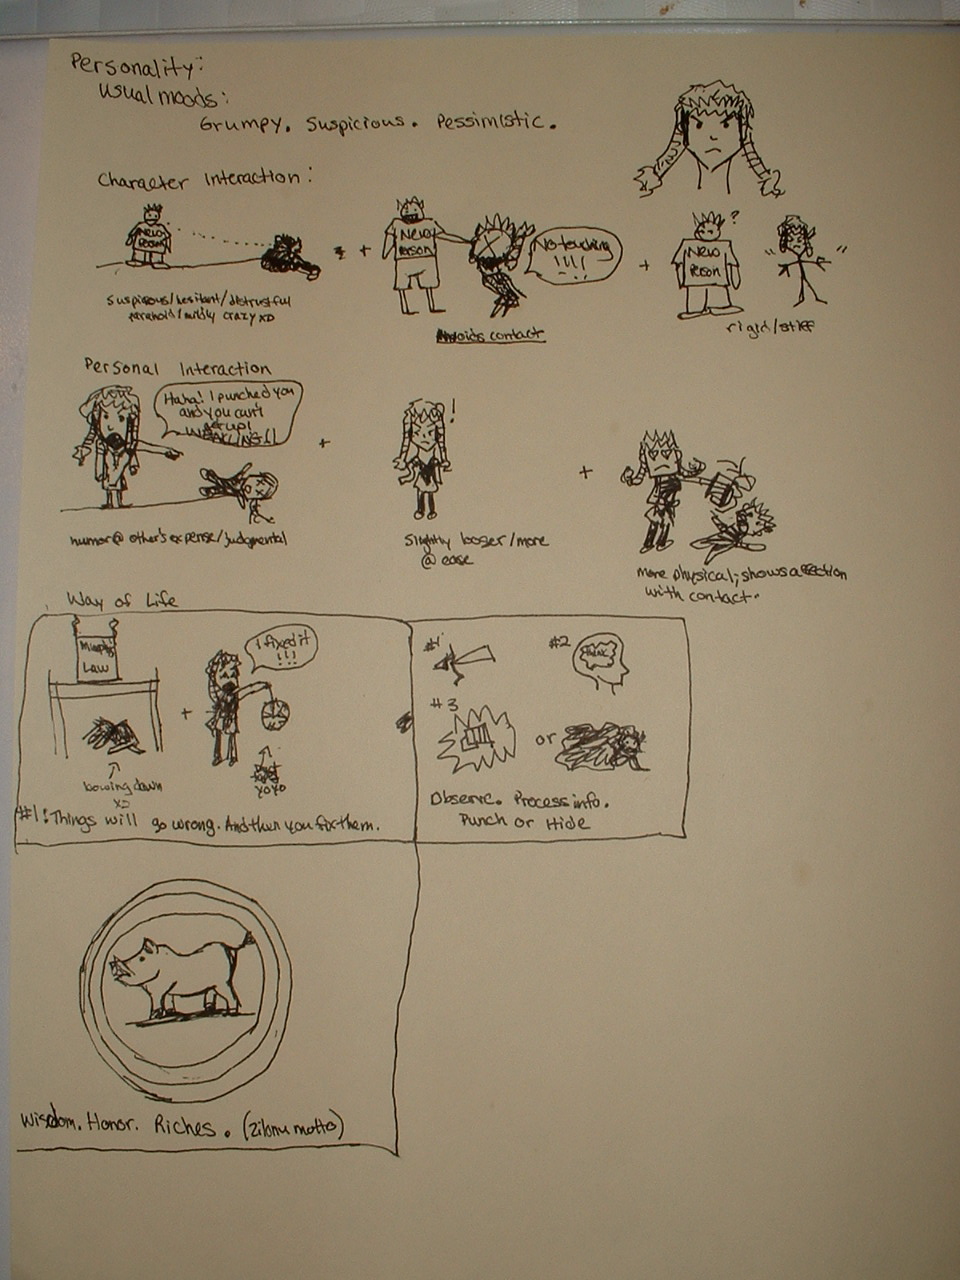 Personality:
Usual moods:
Grumpy. Suspicious. Pessimistic.
Character Interaction:
New
Person
New
Person
No touching
!!!!
?
New
Person
suspicious/hesitant/distrustful
paranoid/mildly crazy XD
+
Avoids contact
+
rigid/stiff
Personal Interaction
Haha! I punched you
and you can't
get up!
WEAKLING!!
+
!
+
humor @ other's expense/judgmental
Slightly looser/more
@ ease
More physical; shows affection
with contact.
Way of Life
Murphy's
Law
+
I fixed it
!!!
bowing down
XD
yoyo
#1: Things will go wrong. And then you fix them.
#1
#2
think
#3
or
Observe. Process info.
Punch or Hide
Wisdom. Honor. Riches. (Zilanu motto)